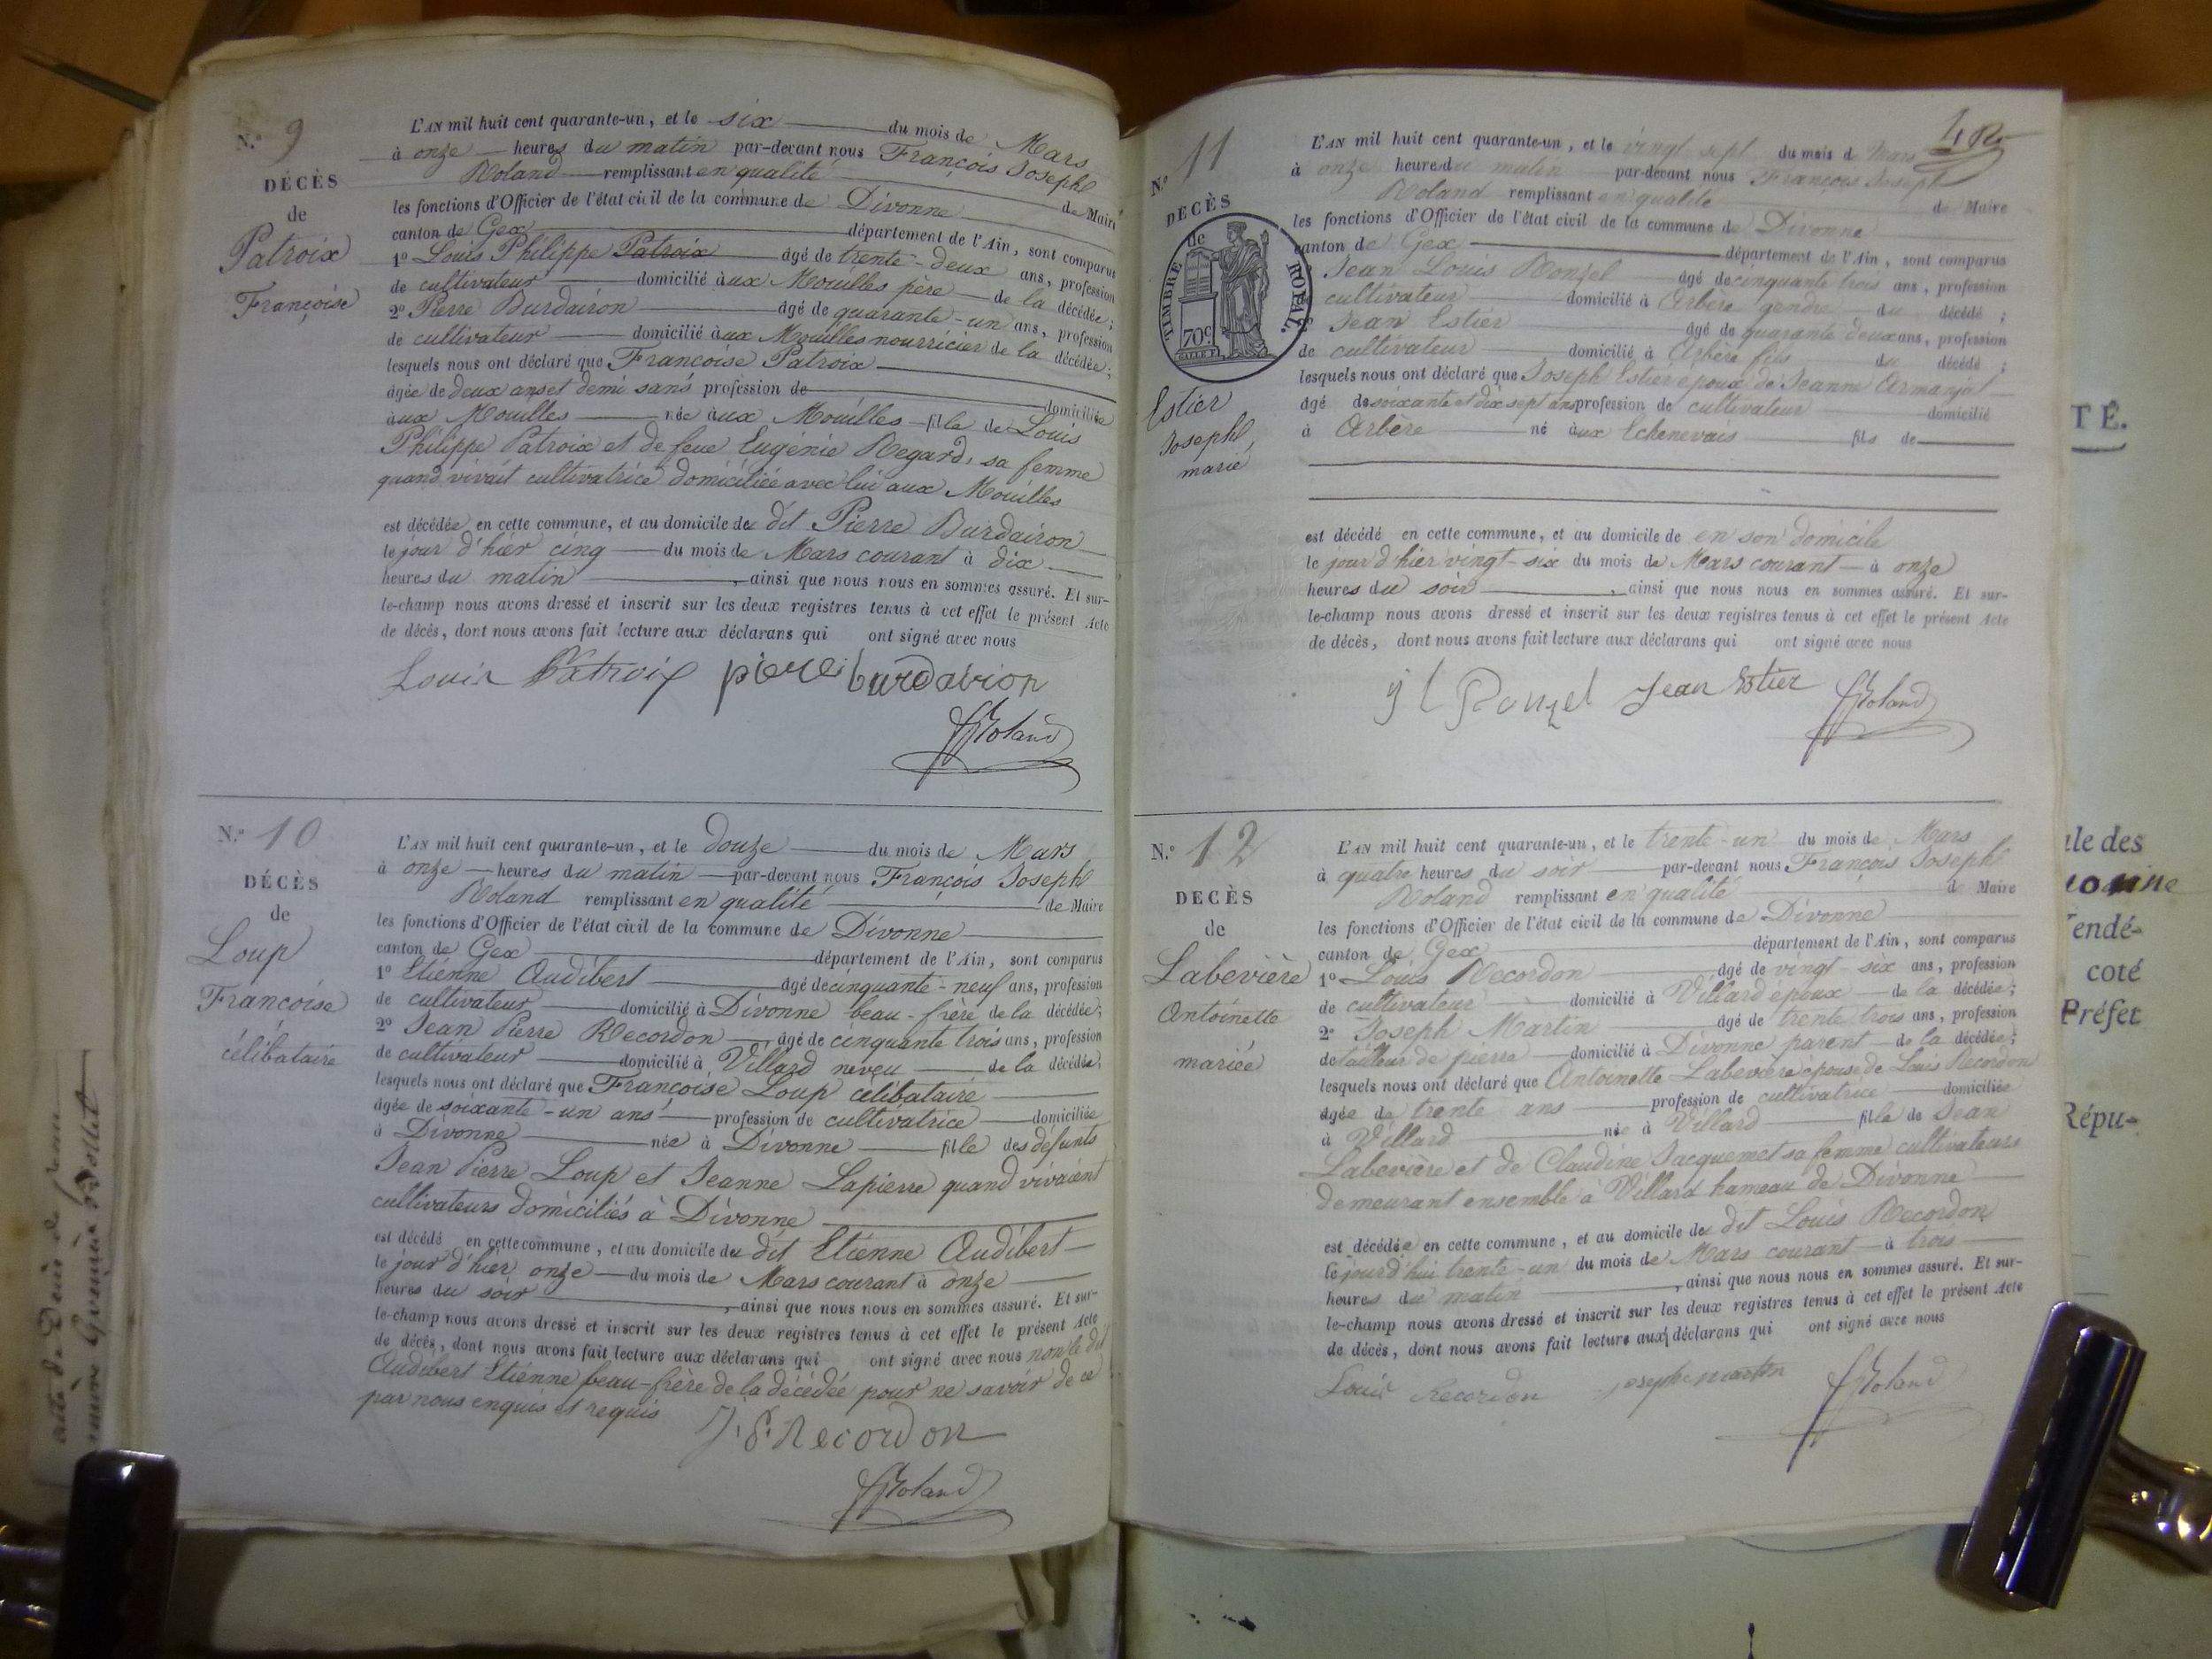 N.° 9
DÉCÈS
de
Patroix
Françoise
L'AN mil huit cent quarante-un, et le six du mois de Mars
à onze heures du matin par-devant nous François Joseph
Roland remplissant en qualité de Maire
les fonctions d'Officier de l'état civil de la commune de Divonne
canton de Gex département de l'Ain, sont comparus
1° Louis Philippe Patroix âgé de trente-deux ans, profession
de cultivateur domicilié aux Mouilles père de la décédée;
2° Pierre Burdairon âgé de quarante-un ans, profession
de cultivateur domicilié aux Mouilles nourricier de la décédée;
lesquels nous ont déclaré que Françoise Patroix
âgée de deux ans et demi sans profession de domiciliée
aux Mouilles née aux Mouilles fille de Louis
Philippe Patroix et de feue Eugénie Regard, sa femme
quand vivait cultivatrice domiciliée avec lui aux Mouilles
est décédée en cette commune, et au domicile de dit Pierre Burdairon
le jour d'hier cinq du mois de Mars courant à dix
heures du matin, ainsi que nous nous en sommes assuré. Et sur-
le-champ nous avons dressé et inscrit sur les deux registres tenus à cet effet le présent Acte
de décès, dont nous avons fait lecture aux déclarans qui ont signé avec nous
Louis Patroix pierre burdairon
Roland
N.° 10
DÉCÈS
de
Loup
Françoise
célibataire
L'AN mil huit cent quarante-un, et le douze du mois de Mars
à onze heures du matin par-devant nous François Joseph
Roland remplissant en qualité de Maire
les fonctions d'Officier de l'état civil de la commune de Divonne
canton de Gex département de l'Ain, sont comparus
1° Etiénne Audibert âgé de cinquante-neuf ans, profession
de cultivateur domicilié à Divonne beau-frère de la décédée;
2° Jean Pierre Recordon âgé de cinquante trois ans, profession
de cultivateur domicilié à Villard neveu de la décédée;
lesquels nous ont déclaré que Françoise Loup célibataire
âgée de soixante-un ans profession de cultivatrice domiciliée
à Divonne née à Divonne fille des défunts
Jean Pierre Loup et Jeanne Lapierre quand vivaient
cultivateurs domiciliés à Divonne
est décédé en cette commune, et au domicile du dit Etiénne Audibert
le jour d'hier onze du mois de Mars courant à onze
heures du soir, ainsi que nous nous en sommes assuré. Et sur-
le-champ nous avons dressé et inscrit sur les deux registres tenus à cet effet le présent Acte
de décès, dont nous avons fait lecture aux déclarans qui ont signé avec nous non le dit
Audibert Etiénne beau-frère de la décédée pour ne savoir de ce
par nous enquis et requis
J. P. Recordon
Roland
N.° 11
DÉCÈS
de
TIMBRE ROYAL.
70c
Estier
Joseph,
marié
L'AN mil huit cent quarante-un, et le vingt sept du mois de Mars
à onze heures du matin par-devant nous François Joseph
Roland remplissant en qualité de Maire
les fonctions d'Officier de l'état civil de la commune de Divonne
canton de Gex département de l'Ain, sont comparus
Jean Louis Ronzel âgé de cinquante trois ans, profession
cultivateur domicilié à Arbère gendre du décédé;
Jean Estier âgé de quarante deux ans, profession
de cultivateur domicilié à Arbère fils du décédé;
lesquels nous ont déclaré que Joseph Estier époux de Jeanne Armanjat
âgé de soixante et dix sept ans profession de cultivateur domicilié
à Arbère né aux Echenevais fils de
est décédé en cette commune, et au domicile de en son domicile
le jour d'hier vingt-six du mois de Mars courant à onze
heures du soir, ainsi que nous nous en sommes assuré. Et sur-
le-champ nous avons dressé et inscrit sur les deux registres tenus à cet effet le présent Acte
de décès, dont nous avons fait lecture aux déclarans qui ont signé avec nous
j l Ronzel Jean Estier Roland
N.° 12
DÉCÈS
de
Labevière
Antoinette
mariée
L'AN mil huit cent quarante-un, et le trente-un du mois de Mars
à quatre heures du soir par-devant nous François Joseph
Roland remplissant en qualité de Maire
les fonctions d'Officier de l'état civil de la commune de Divonne
canton de Gex département de l'Ain, sont comparus
1° Louis Recordon âgé de vingt-six ans, profession
de cultivateur domicilié à Villard époux de la décédée;
2° Joseph Martin âgé de trente trois ans, profession
de tailleur de pierre domicilié à Divonne parent de la décédée;
lesquels nous ont déclaré que Antoinette Labevière épouse de Louis Recordon
âgée de trente ans profession de cultivatrice domiciliée
à Villard née à Villard fille de Jean
Labevière et de Claudine Jacquemet sa femme cultivateurs
demeurant ensemble à Villard hameau de Divonne
est décédée en cette commune, et au domicile de dit Louis Recordon
le jourd'hui trente-un du mois de Mars courant à trois
heures du matin, ainsi que nous nous en sommes assuré. Et sur-
le-champ nous avons dressé et inscrit sur les deux registres tenus à cet effet le présent Acte
de décès, dont nous avons fait lecture aux déclarans qui ont signé avec nous
Louis Recordon joseph martin Roland
TÉ.
ale des
endé-
coté
Préfet
Répu-